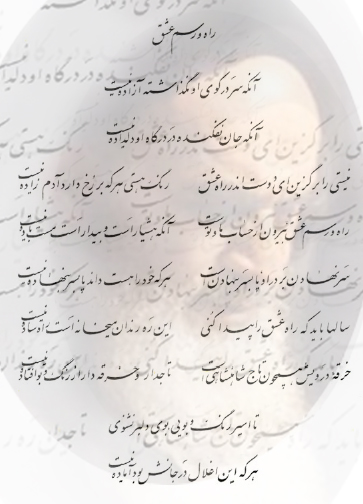 راه و رسم عشق
آنکه سر در کوی او نگذاشته آزاده نیست
آنکه جان نفکنده در درگاه او دلداده نیست
نیستی را برگزین ای دوست اندر راه عشق رنگ هستی هر که بر رخ دارد آدم زاده نیست
راه و رسم عشق بیرون از حساب ما و توست آنکه هشیار است و بیدار است مست باده نیست
سر نهادن بر در او پا به سر بنهادن است هر که خود را هست داند پا به سر بنهاده نیست
سالها باید که راه عشق را پیدا کنی این ره رندان میخانه است راه ساده نیست
خرقه درویش همچون تاج شاهنشاهی است تاجدار و خرقه دار از رنگ و بو افتاده نیست
تا اسیر رنگ و بویی بوی دلبر نشنوی
هر که این اغلال در جانش بود آماده نیست